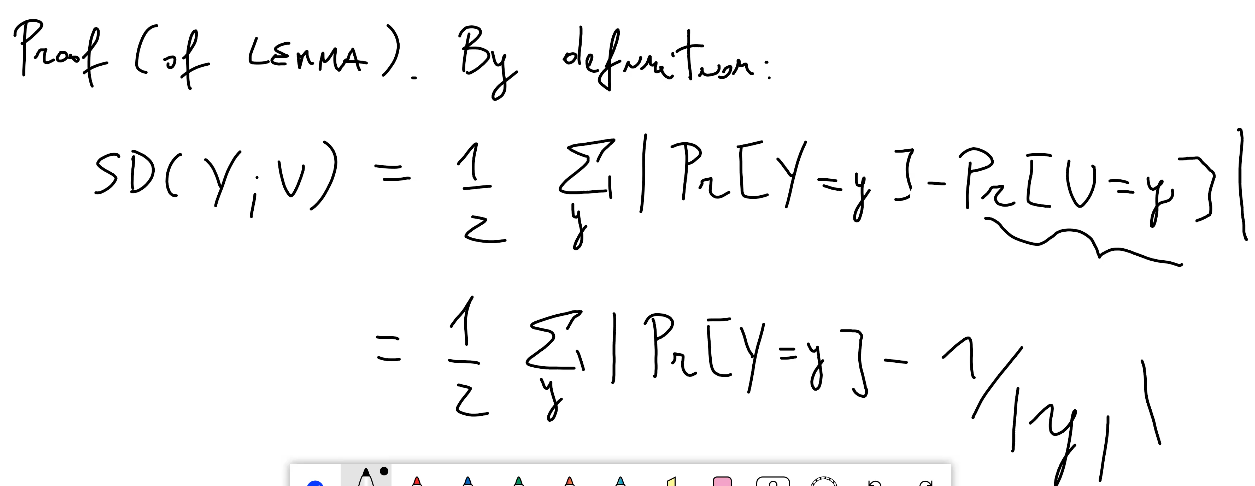 Proof (of LEMMA). By definition:
SD(Y;U) = 1/2 Σ_y | Pr[Y=y] - Pr[U=y] |
= 1/2 Σ_y | Pr[Y=y] - 1/|𝒴| |